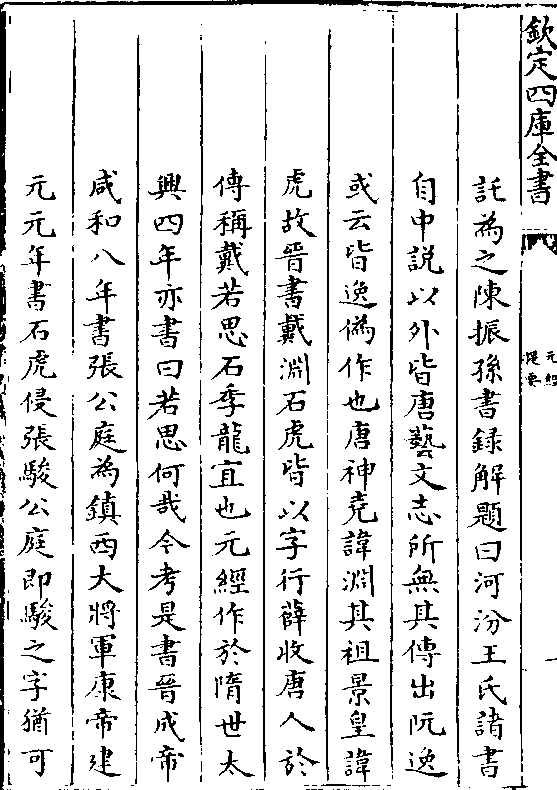 欽定四庫全書
元經
提要
託為之陳振孫書録解題曰河汾王氏諸書
自中説以外皆唐藝文志所無其傳出阮逸
或云皆逸偽作也唐神堯諱淵其祖景皇諱
虎故晉書戴淵石虎皆以字行薛收唐人於
傳稱戴若思石季龍宜也元經作於隋世太
興四年亦書曰若思何哉今考是書晉成帝
咸和八年書張公庭為鎮西大將軍康帝建
元元年書石虎侵張駿公庭即駿之字猶可